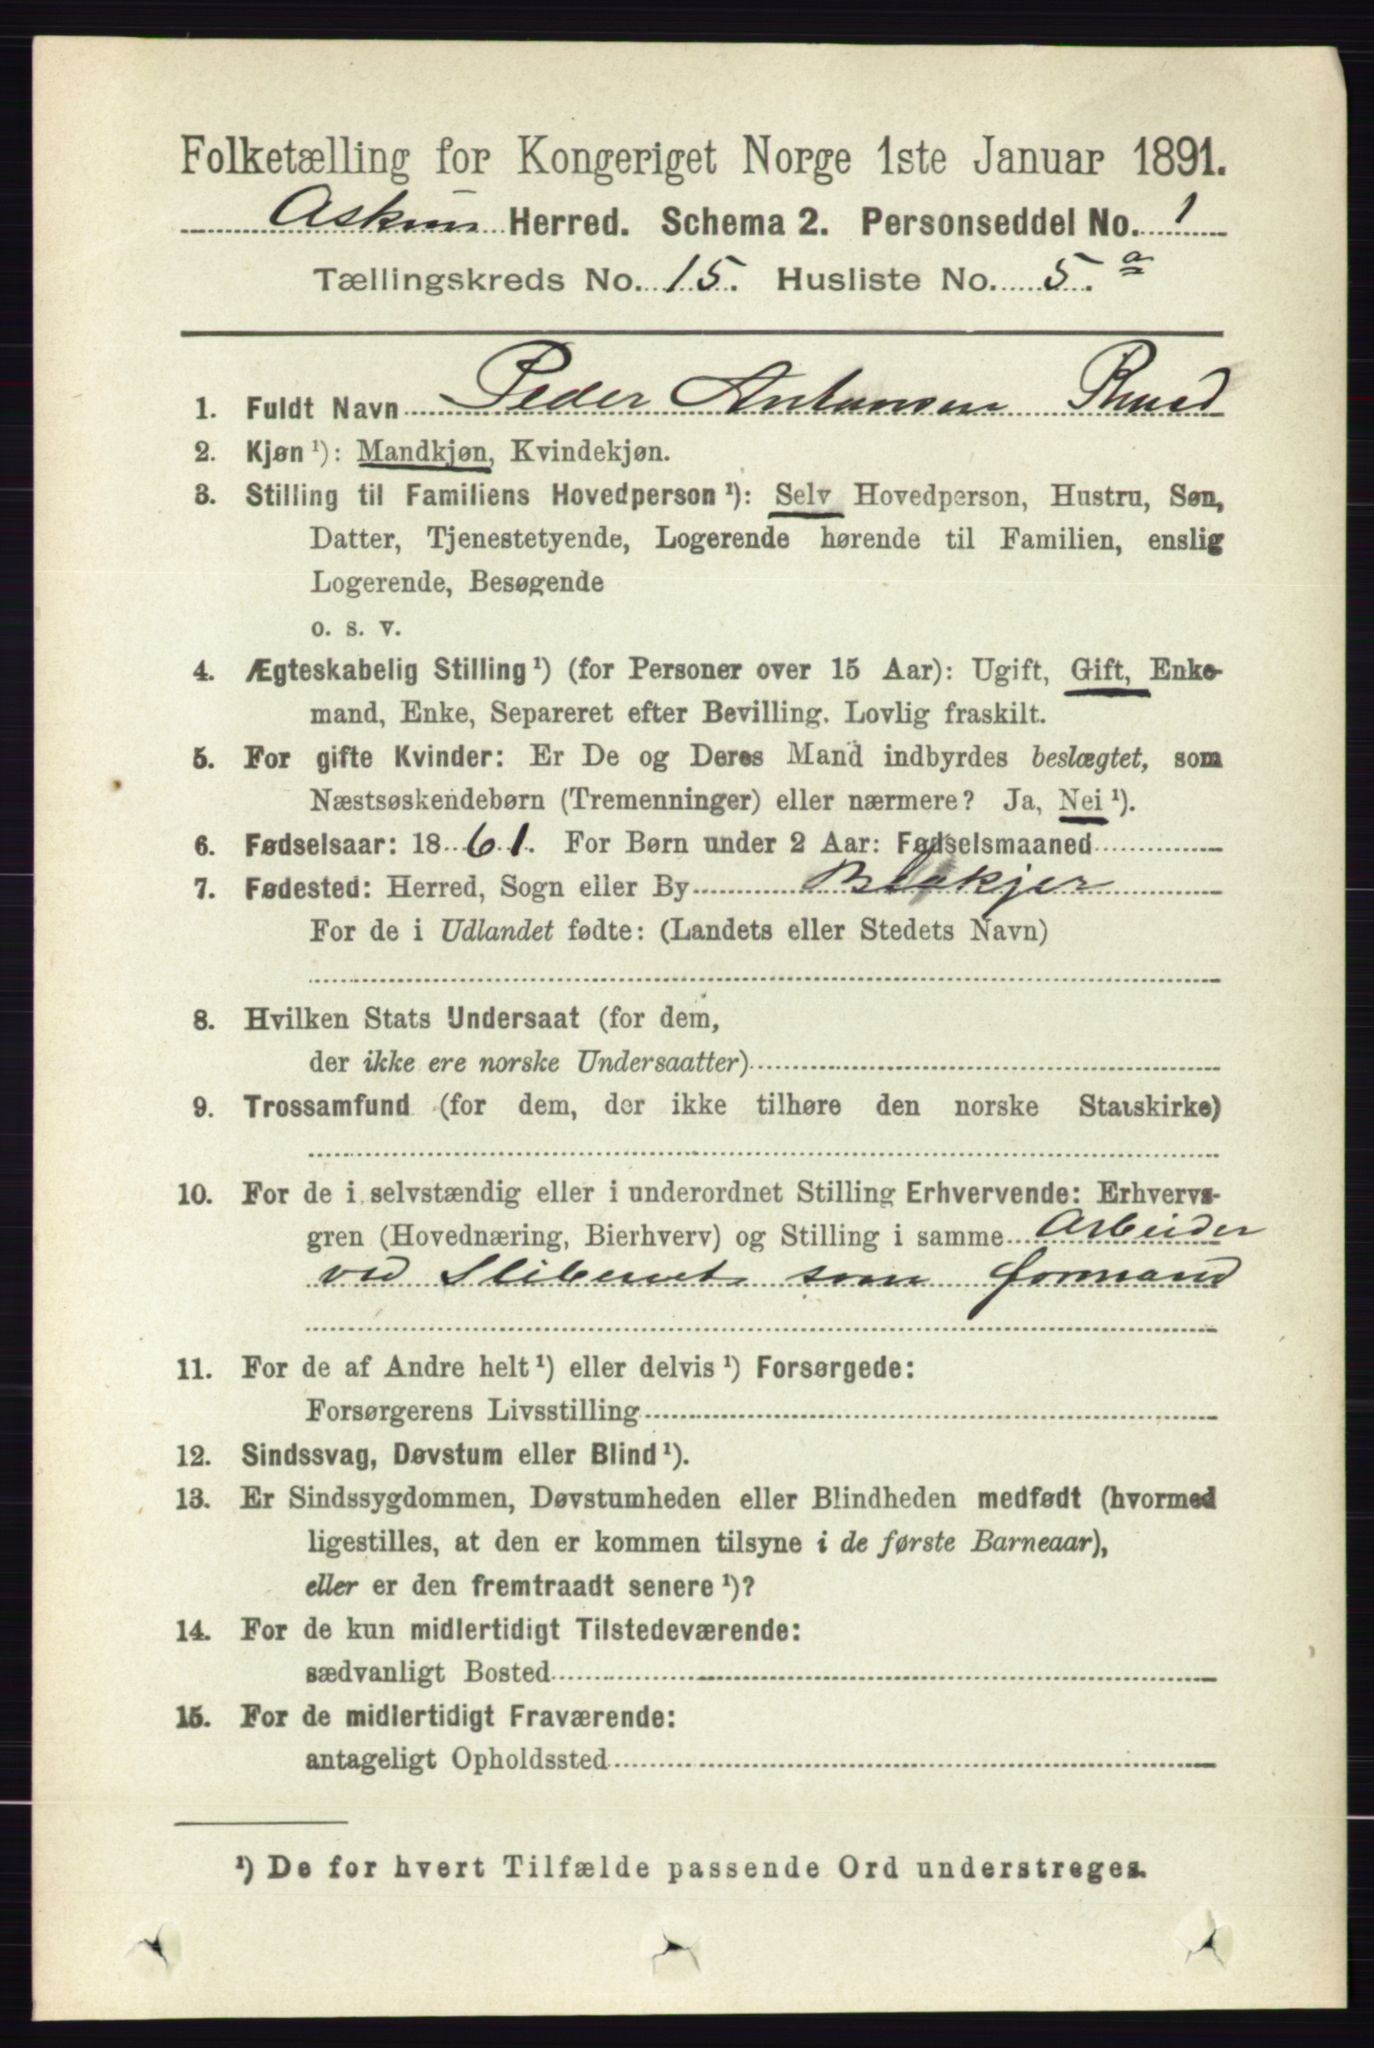 Folketælling for Kongeriget Norge 1ste Januar 1891.
Askim Herred. Schema 2. Personseddel No. 1
Tællingskreds No. 15. Husliste No. 5.a
1. Fuldt Navn Peder Antonsen Ruud
2. Kjøn ¹): Mandkjøn, Kvindekjøn.
3. Stilling til Familiens Hovedperson ¹): Selv Hovedperson, Hustru, Søn,
Datter, Tjenestetyende, Logerende hørende til Familien, enslig
Logerende, Besøgende
o. s. v.
4. Ægteskabelig Stilling ¹) (for Personer over 15 Aar): Ugift, Gift, Enke-
mand, Enke, Separeret efter Bevilling. Lovlig fraskilt.
5. For gifte Kvinder: Er De og Deres Mand indbyrdes beslægtet, som
Næstsøskendebørn (Tremenninger) eller nærmere? Ja, Nei ¹).
6. Fødselsaar: 1861. For Børn under 2 Aar: Fødselsmaaned
7. Fødested: Herred, Sogn eller By Blakjer
For de i Udlandet fødte: (Landets eller Stedets Navn)
8. Hvilken Stats Undersaat (for dem,
der ikke ere norske Undersaatter)
9. Trossamfund (for dem, der ikke tilhøre den norske Statskirke)
10. For de i selvstændig eller i underordnet Stilling Erhvervende: Erhvervs-
gren (Hovednæring, Bierhverv) og Stilling i samme Arbeider
ved Sliberiet som formand
11. For de af Andre helt ¹) eller delvis ¹) Forsørgede:
Forsørgerens Livsstilling
12. Sindssvag, Døvstum eller Blind ¹).
13. Er Sindssygdommen, Døvstumheden eller Blindheden medfødt (hvormed
ligestilles, at den er kommen tilsyne i de første Barneaar),
eller er den fremtraadt senere ¹)?
14. For de kun midlertidigt Tilstedeværende:
sædvanligt Bosted
15. For de midlertidigt Fraværende:
antageligt Opholdssted
¹) De for hvert Tilfælde passende Ord understreges.